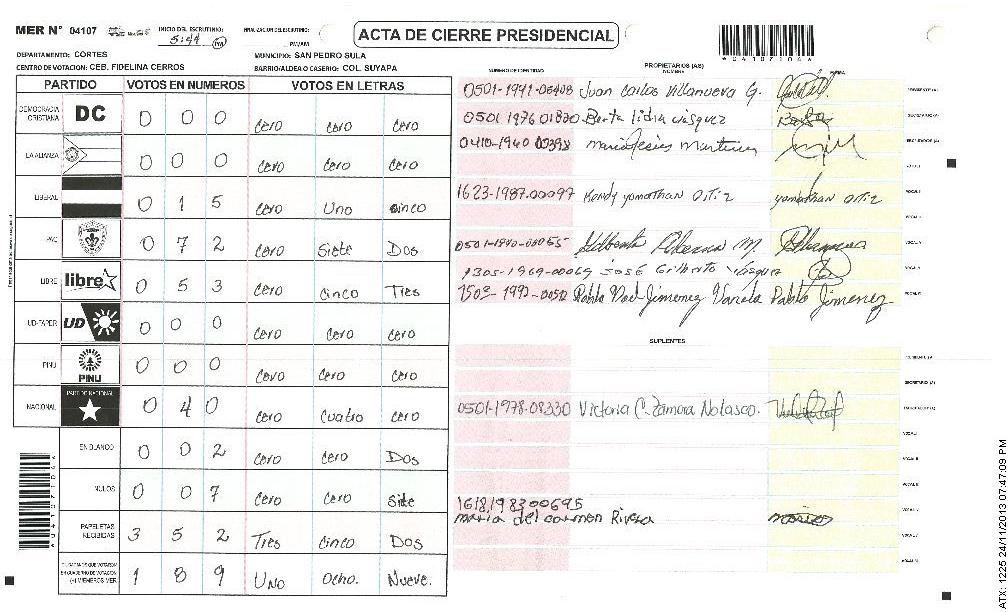 MER N° 04107 INICIO DEL ESCRUTINIO: FINALIZACION DEL ESCRUTINIO:
5:44 PM/AM
ACTA DE CIERRE PRESIDENCIAL
DEPARTAMENTO: CORTES MUNICIPIO: SAN PEDRO SULA
CENTRO DE VOTACION: CEB. FIDELINA CERROS BARRIO/ALDEA O CASERIO: COL. SUYAPA
PARTIDO VOTOS EN NUMEROS VOTOS EN LETRAS
DEMOCRACIA CRISTIANA DC 0 0 0 Cero Cero Cero
LA ALIANZA 0 0 0 Cero Cero Cero
LIBERAL 0 1 5 Cero Uno Cinco
PAC 0 7 2 Cero Siete Dos
LIBRE libre 0 5 3 Cero Cinco Tres
UD-FAPER UD 0 0 0 Cero Cero Cero
PINU PINU 0 0 0 Cero Cero Cero
NACIONAL PARTIDO NACIONAL 0 4 0 Cero Cuatro Cero
EN BLANCO 0 0 2 Cero Cero Dos
NULOS 0 0 7 Cero Cero Siete
PAPELETAS RECIBIDAS 3 5 2 Tres Cinco Dos
CIUDADANOS QUE VOTARON EN CUADERNO DE VOTACION (+) MIEMBROS MER 1 8 9 Uno Ocho. Nueve.
A04107104A
PROPIETARIOS (AS)
NUMERO DE IDENTIDAD NOMBRE FIRMA
0501-1991-06408 Juan Carlos Villanueva G. PRESIDENTE (A)
0501 1976 01820 Berta Lidia Vasquez SECRETARIO (A)
0410-1940 00398 Maria Jesus Martinez ESCRUTADOR (A)
VOCAL I
1623-1987-00097 Kendy Yomathan Ortiz Yomathan Ortiz
0501-1940-00055
1305-1969-00069 José Gilberto Vásquez
Pablo Noel Jimenez Varela Pablo Jimenez
SUPLENTES
PRESIDENTE (A)
SECRETARIO (A)
0501-1978-08330 Victoria C. Zamora Nolasco. ESCRUTADOR (A)
1618198300695
Maria del Carmen Rivera
A04107104A
ATX: 1225 24/11/2013 07:47:09 PM